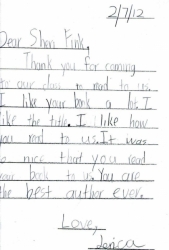 2/7/12
Dear Shen Fink,
Thank you for coming
to our class to read to us.
I like your book a lot. I
like the title. I like how
you read to us. It was
so nice that you read
your book to us. You are
the best author ever.
Love,
Jerica